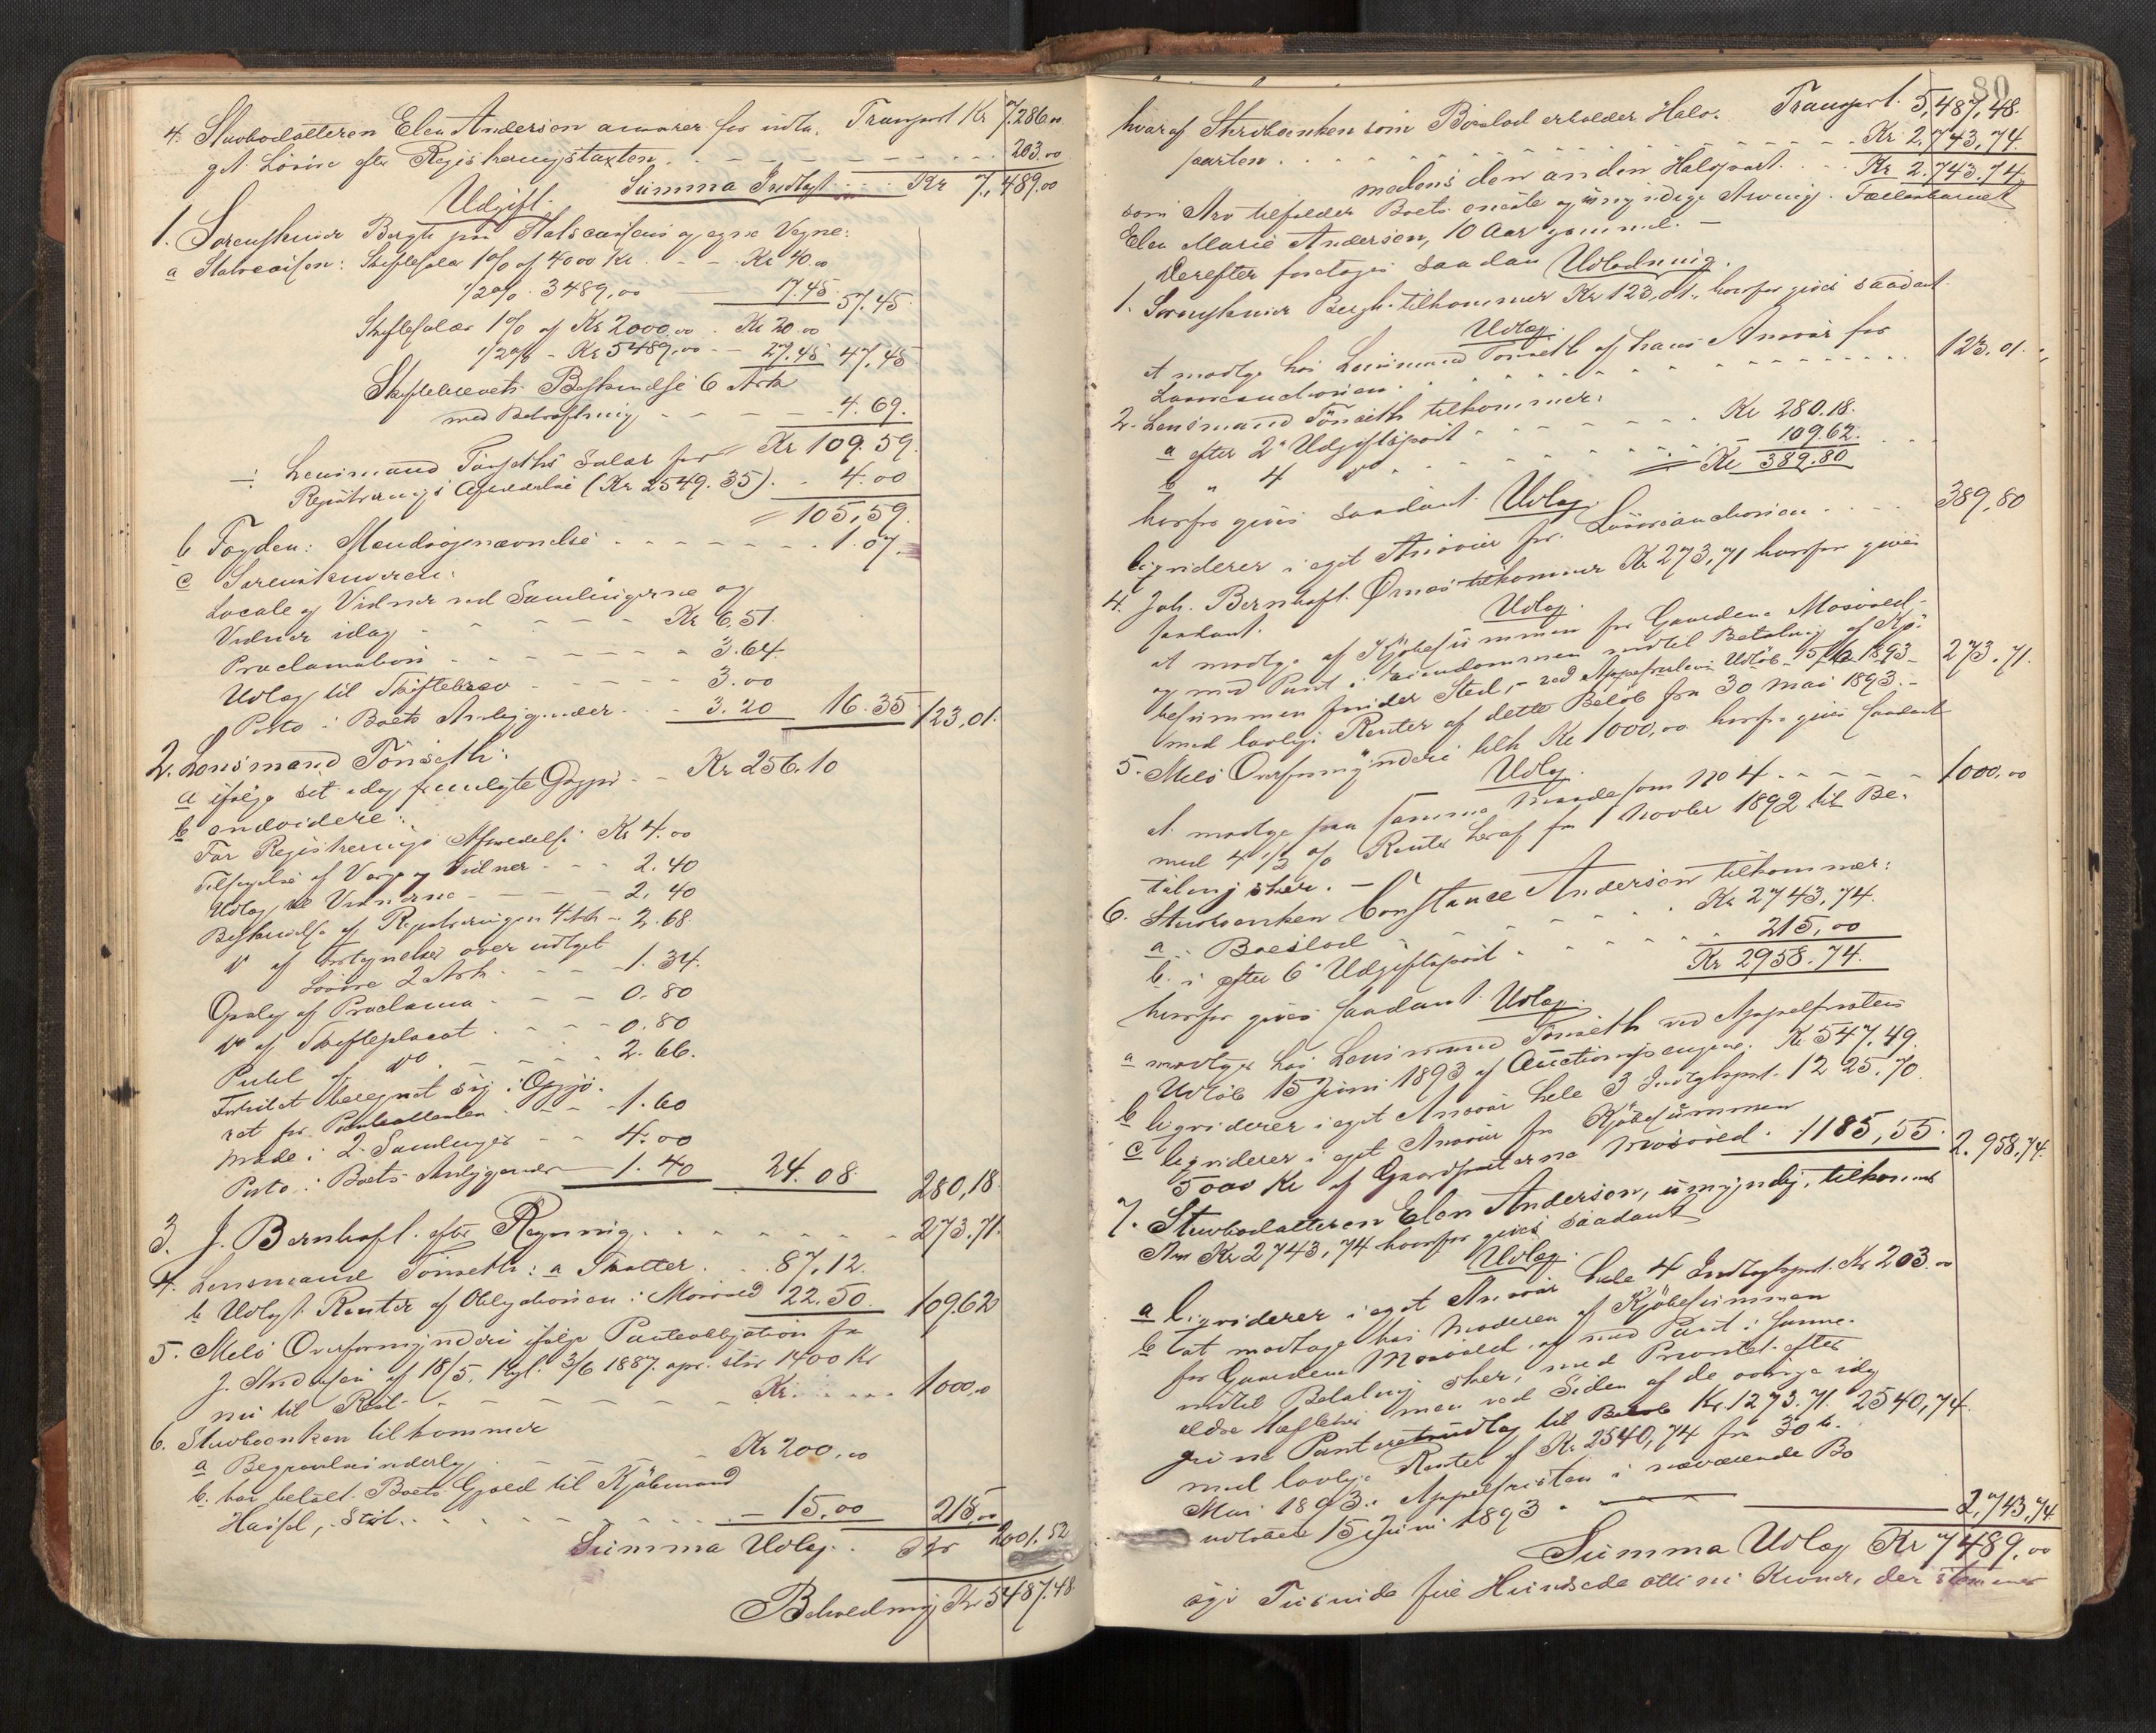 4. Stuvbodatteren Elen Andersen ansvarer for indta. Transport Kr 7.286.00
get. Løsøre efter Registreringstaxten. 203.00
Summa Indtægt Kr 7,489.00
Udgift.
1. Sorenskriver Bergh paa Statscassens og egne Vegne:
a Statscassen: Skiftesalær 1% af 4000 Kr. Kr 40.00
1/2% 3489,00 17.45. 57.45.
Skiftesalær 1% af Kr 2000.00. Kr 20.00
1/2% - Kr 5489,00 - 27.45 47,45
Skiftebrevets Beskrivelse 6 Ark
med Bekræftning 4.69.
Kr 109.59.
÷ Lensmand Tönseths Salær for
Registrerings Afværelse (Kr 2549.35). 4.00
105,59.
b Fogden: Mændsopnævnelse 1.07.
c Sorenskriveren:
Locale og Vidner ved Samlingerne og
Vidner idag Kr 6,51.
Proclamation 3.64.
Udlæg til Skiftebrev 3.00
Porto i Boets Anliggender 3.20 16.35 123,01.
2. Lensmand Tönseth:
a ifølge sit idag fremlagte Opgjør Kr 256.10
b endvidere:
For Registrerings Afværelse Kr 4.00
Tilsigelse af Værge og Vidner 2.40
Udlæg til Vidnerne 2,40
Beskrivelse af Registreringen 4 Ark 2.68.
do af Fortegnelse over udtaget
Løsøre 2 Ark 1.34.
Opslag af Proclama 0.80
do af Skifteplacat 0.80
Publ af do 2.66.
Forhen beregnet sig i Opgjø-
ret for
Møde i 2 Samlinger 1.60
4.00
Porto i Boets Anliggender 1.40 24.08 280,18.
3. J. Bernhoft efter Regning 273.71.
4. Lensmand Tönseth: a Skatter 87,12.
b Udlagt Renter af Obligationen i Mosvold 22.50. 109.62
5. Melø Overformynderi ifølge Panteobligation fra
J. Andersen af 18/5, tgl. 3/6 1887. opr. stor 1400 Kr
nu til Rest Kr. 1000,00
6. Stuvboenken tilkommer
a Begravelsesudlæg Kr 200,00
b. har betalt Boets Gjæld til Kjøbmand
Hassel, Støt. 15,00 215,00
Summa Udlæg. Kr 2001.52
Beholdning Kr 5487.48

80
Transport 5,487,48.
hvoraf Stuvboenken som Boeslod erholder Halv-
parten Kr 2,743,74.
medens den anden Halvpart Kr 2.743.74.
som Arv tilfalder Boets eneste og umyndige Arving, Fællesbarnet
Elen Marie Andersen, 10 Aar gammel. -
Derefter foretages saadan Udlodning.
1. Sorenskriver Bergh tilkommer Kr 123,01., hvorfor gives saadant
Udlæg.
at modtage hos Lensmand Tönseth af hans Ansvar for
Løsøreauctionen 123.01.
2. Lensmand Tönseth tilkommer:
a efter 2 Udgiftspost Kr 280.18.
b " 4 do 109.62.
Kr 389.80
hvorfor gives saadant Udlæg.
liqviderer i eget Ansvar for Løsøreauctionen 389,80
4. Joh. Bernhoft Ørnes tilkommer Kr 273,71 hvorfor gives
saadant. Udlæg.
at modtage af Kjøbesummen for Gaarden Mosvold,
og med Pant i Eiendommen indtil Betaling af Kjø-
besummen finder Sted, - ved Appelfristens Udløb 15/6 1893 - 273,71.
med lovlige Renter af dette Beløb fra 30 Mai 1893.-
5. Melø Overformynderi tilk Kr 1000,00 hvorfor gives saadant
Udlæg.
at modtage paa samme Maade som No 4 1000.00
med 4 1/2 % Rente heraf fra 1 Novbr 1892 til Be-
taling sker. -
6. Stuvboenken Constance Andersen tilkommer:
a. Boeslod Kr 2743,74.
b. efter 6 Udgiftspost 215,00
Kr 2958.74.
hvorfor gives saadant Udlæg.
a modtager hos Lensmand Tönseth ved Appelfristens
Udløb 15 Juni 1893 af Auctionspengene. Kr 547,49.
b liqviderer i eget Ansvar hele 3 Indtægtspost. 1225.70.
c liqviderer i eget Ansvar for Kjøbesummen
5000 Kr af Gaardparterne Mosvold. 1185,55. 2.958,74.
7. Stuvbodatteren Elen Andersen, umyndig, tilkommer
Arv Kr 2743,74 hvorfor gives saadant
Udlæg.
a liqviderer i eget Ansvar hele 4 Indtægtspost. Kr 203.00
b at modtage hos Moderen af Kjøbesummen
for Gaarden Mosvold, og med Pant i samme.
indtil Betaling sker, med Prioritet efter
ældre Heftelser men ved Siden af de øvrige idag
givne Panteretudlæg til Beløb Kr. 1273.71. 2540,74.
med lovlige Renter af Kr 2540,74 fra 30te
Mai 1893. Appelfristen i nærværende Bo
udløber 15 Juni 1893. 2,743,74.
Summa Udlæg Kr 7489.00
syv Tusinde fire Hundrede otti ni Kroner, der stemmer